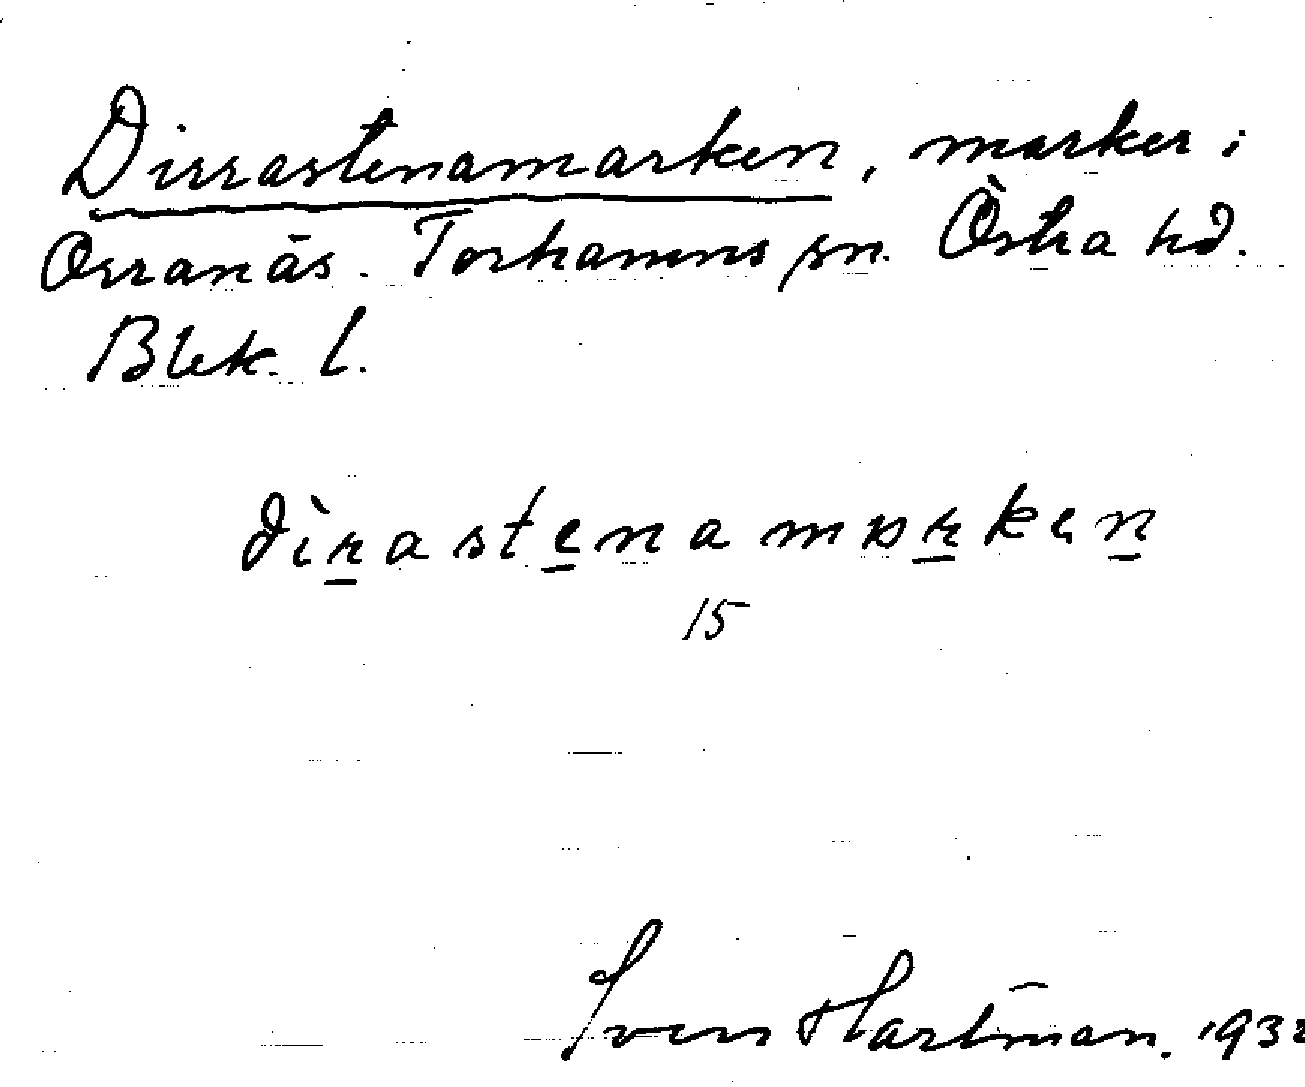 Dirrastenamarken, marker i
Orranäs. Torhamns sn. Östra hd.
Blek. l.
dìrastenamarken
15
Sven Hartman. 1932